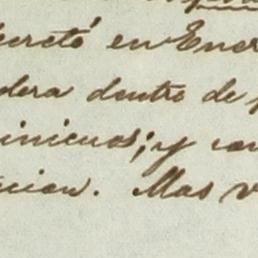 cretó en Ener
dera dentro de
inicuos; y con
cion. Mas v